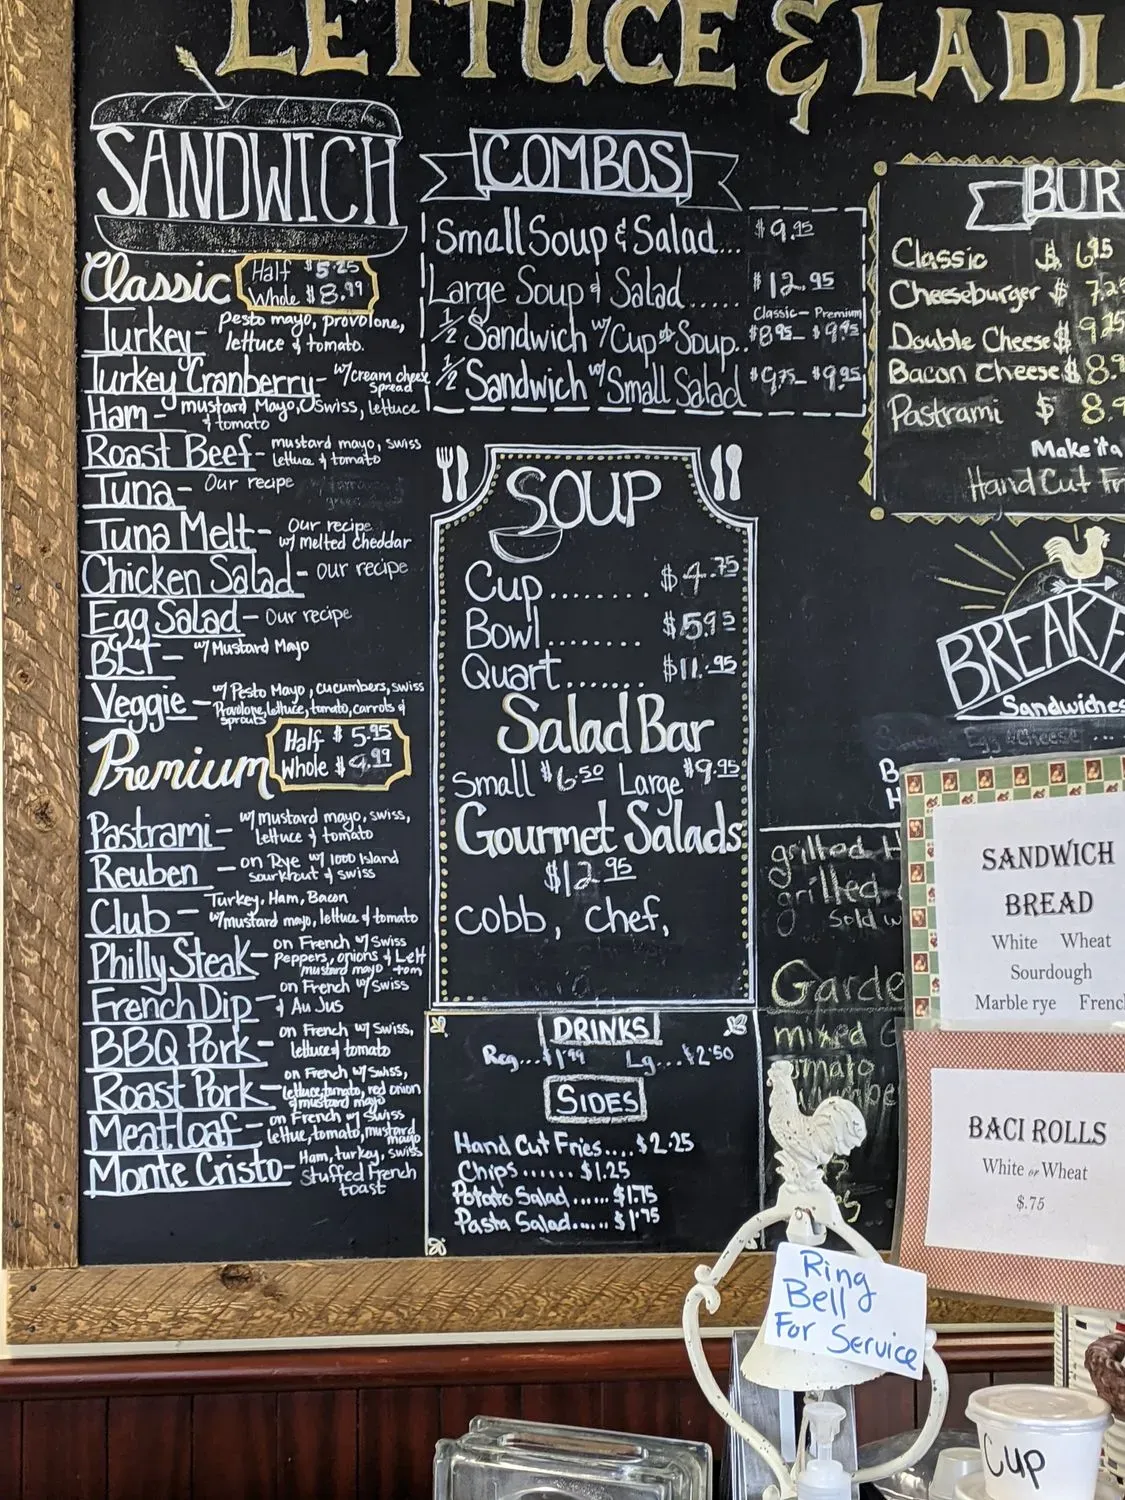 LETTUCE & LADL
SANDWICH
Classic
Half $5.25
Whole $8.99
Turkey - Pesto mayo, provolone,
lettuce & tomato.
Turkey Cranberry - w/cream cheese
spread
Ham - mustard Mayo, Swiss, lettuce
& tomato
Roast Beef - mustard mayo, swiss
lettuce & tomato
Tuna - Our recipe
Tuna Melt - Our recipe
w/ melted cheddar
Chicken Salad - our recipe
Egg Salad - Our recipe
BLT - w/ Mustard Mayo
Veggie - w/ Pesto Mayo, cucumbers, swiss
Provolone, lettuce, tomato, carrots &
sprouts
Premium
Half $5.95
Whole $9.99
Pastrami - w/ mustard mayo, swiss,
lettuce & tomato
Reuben - on Rye w/ 1000 Island
sourkrout & swiss
Club - Turkey, Ham, Bacon
w/ mustard mayo, lettuce & tomato
Philly Steak - on French w/ Swiss
Peppers, onions & Lett
mustard mayo - tom
French Dip - on French w/ Swiss
& Au Jus
BBQ Pork - on French w/ Swiss,
lettuce & tomato
Roast Pork - on French w/ Swiss,
lettuce, tomato, red onion
& mustard mayo
Meatloaf - on French w/ Swiss
lettue, tomato, mustard
mayo
Monte Cristo - Ham, turkey, swiss
Stuffed French
toast
COMBOS
Small Soup & Salad... $9.95
Large Soup & Salad..... $12.95
Classic - Premium
1/2 Sandwich w/ Cup of Soup.. $8.95 - $9.45
1/2 Sandwich w/ Small Salad $9.75 - $9.95
SOUP
Cup........ $4.75
Bowl....... $5.95
Quart....... $11.95
Salad Bar
Small $6.50 Large $9.95
Gourmet Salads
$12.95
cobb, chef,
DRINKS
Reg...$1.99 Lg...$2.50
SIDES
Hand Cut Fries....$2.25
Chips......$1.25
Potato Salad......$1.75
Pasta Salad......$1.75
BUR
Classic $6.95
Cheeseburger $7.25
Double Cheese $9.25
Bacon cheese $8.9
Pastrami $8.9
Make it a
Hand Cut Fr
BREAKF
Sandwiches
Egg & Cheese ...
B
H
grilled H
grilled
Sold w
Garde
mixed G
tomato
SANDWICH
BREAD
White Wheat
Sourdough
Marble rye Frenc
BACI ROLLS
White or Wheat
$.75
Ring
Bell
For Service
Cup